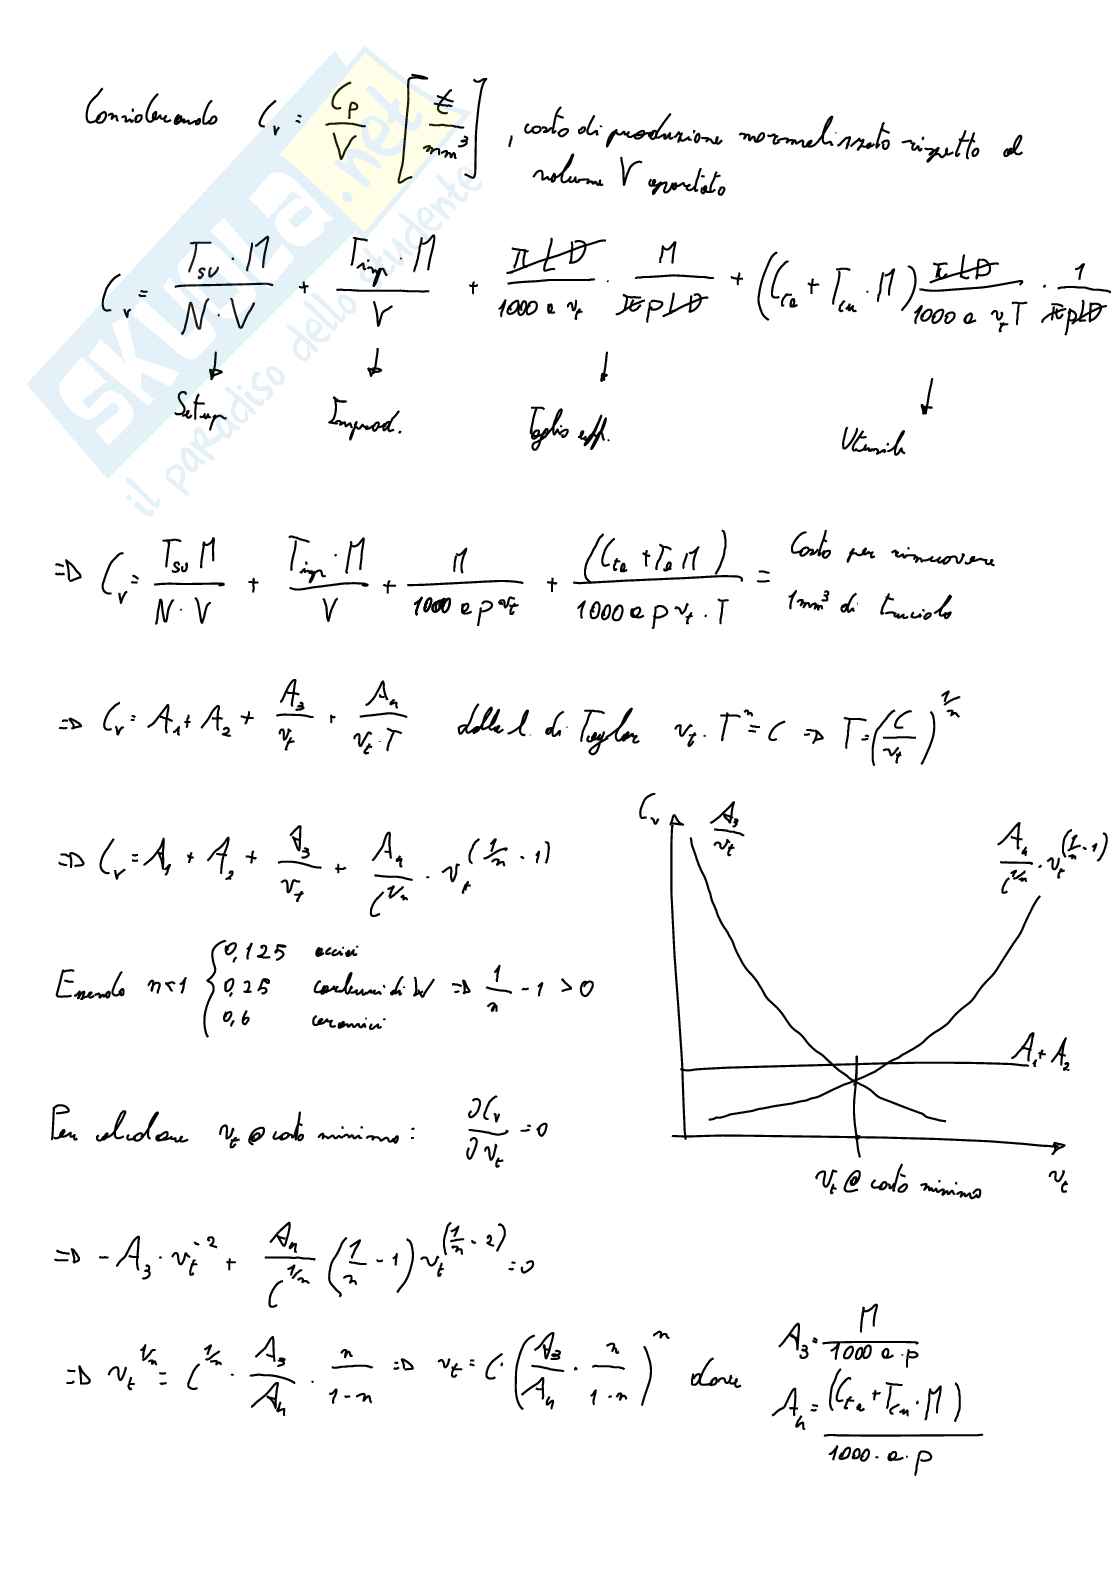 Considerando C_v = C_p / V [€ / mm³], costo di produzione normalizzato rispetto al
volume V asportato
C_v = T_su · M / N · V + T_imp · M / V + π L D / 1000 a v_t · M / π p L D + (C_ta + T_cu · M) π L D / 1000 a v_t T · 1 / π p L D
↓ Setup ↓ Improd. ↓ Taglio eff. ↓ Utensile
⇒ C_v = T_su M / N · V + T_imp · M / V + M / 1000 a p v_t + (C_ta + T_a M) / 1000 a p v_t · T = Costo per rimuovere
1 mm³ di truciolo
⇒ C_v = A_1 + A_2 + A_3 / v_t + A_4 / v_t · T dalla l. di Taylor v_t · T^n = C ⇒ T = (C / v_t)^(1/n)
⇒ C_v = A_1 + A_2 + A_3 / v_t + A_4 / C^(1/n) · v_t^(1/n - 1)
Essendo n < 1 { 0,125 acciai
0,25 carburi di W ⇒ 1/n - 1 > 0
0,6 ceramici
C_v
A_3 / v_t
A_4 / C^(1/n) · v_t^(1/n - 1)
A_1 + A_2
v_t @ costo minimo
v_t
Per calcolare v_t @ costo minimo: ∂C_v / ∂v_t = 0
⇒ - A_3 · v_t^-2 + A_4 / C^(1/n) (1/n - 1) v_t^(1/n - 2) = 0
⇒ v_t^(1/n) = C^(1/n) · A_3 / A_4 · n / 1 - n ⇒ v_t = C · (A_3 / A_4 · n / 1 - n)^n dove
A_3 = M / 1000 a · p
A_4 = (C_ta + T_cu · M) / 1000 · a · p
SKUOLA.net
il paradiso dello studente